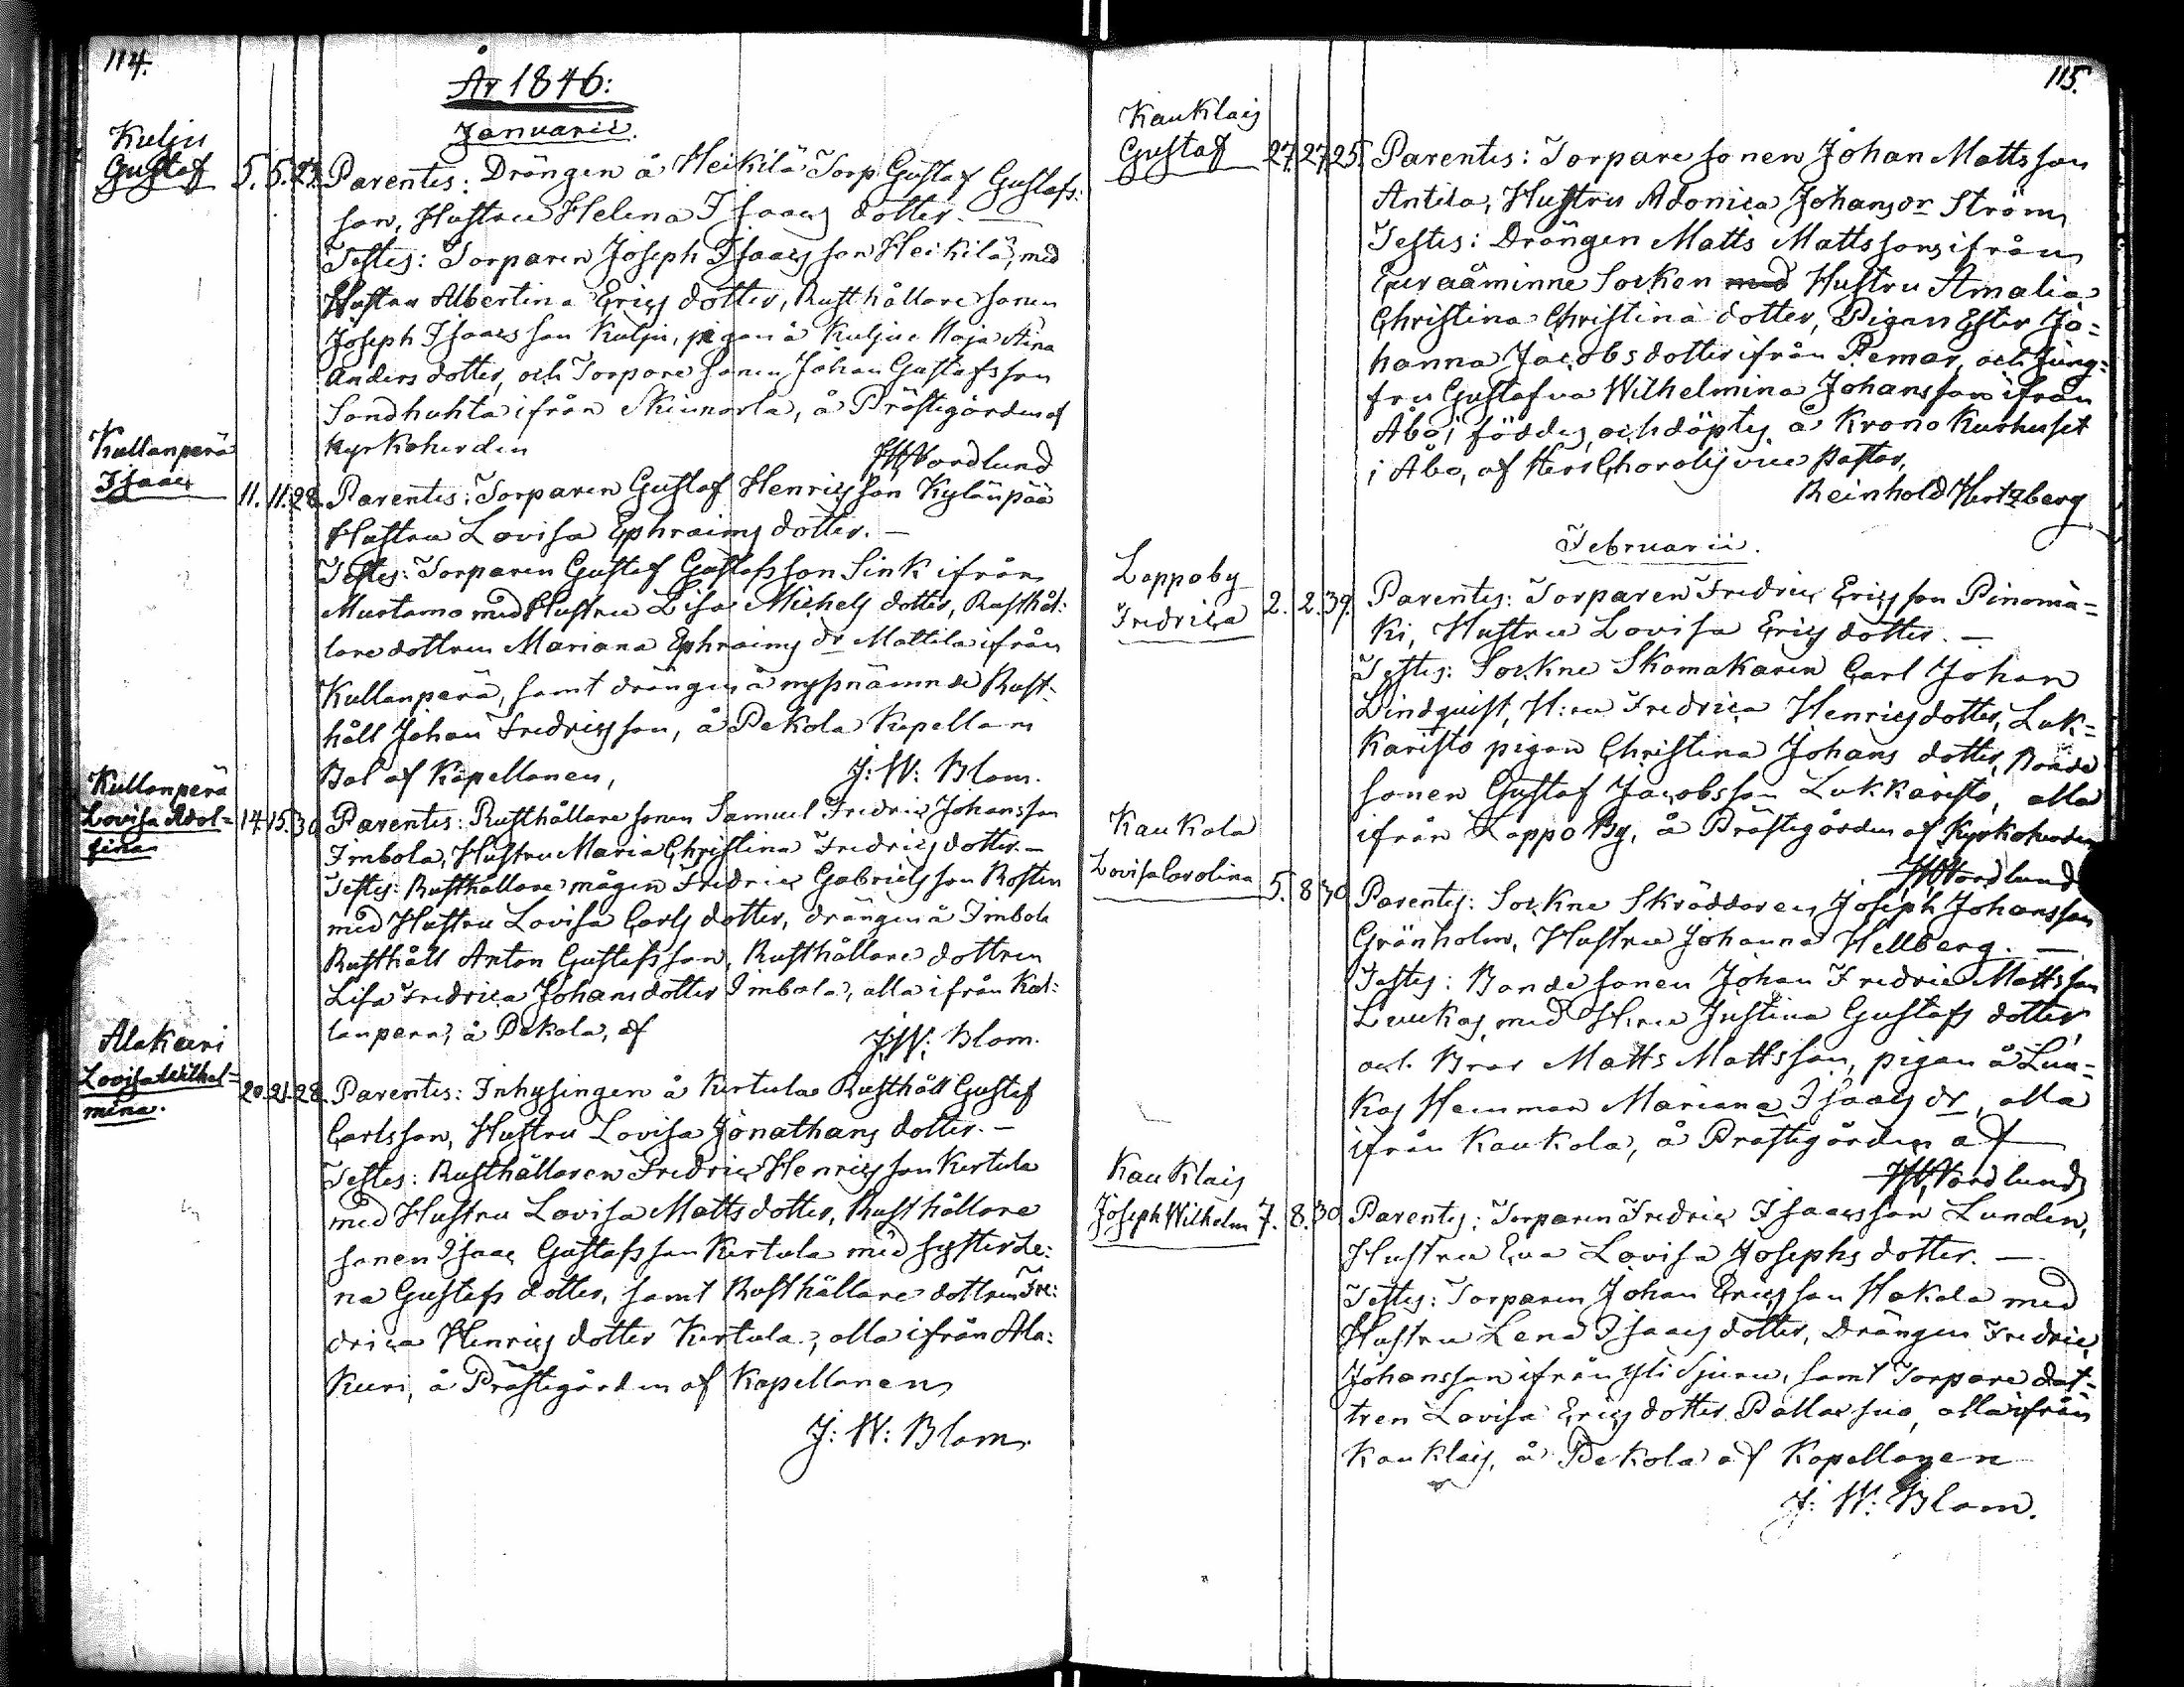 114.
År 1846:
Januarii.
Kulju
Gustaf 5. 5. 27. Parentes: Drängen å Heikilä Torp Gustaf Gustafs:
son, Hustru Helena Isaacs dotter. —
Testes: Torparen Joseph Isaacs son Heikilä, med
Hustru Albertina Erics dotter, Rusthållare sonen
Joseph Isaacs son Kulju, pigan å Kulju Maja Stina
Anders dotter, och Torpare sonen Johan Gustafsson
Sondhuhta ifrån Skinnarla, å Prästegården af
Kyrkoherden Nordlund
Kullanperä
Isaac 11. 11. 28. Parentes: Torparen Gustaf Henrics son Kylänpää
Hustru Lovisa Ephraims dotter. —
Testes: Torparen Gustaf Gustafsson Sink ifrån
Mustamo med Hustru Lisa Michels dotter, Rusthål:
lare dottren Mariana Ephraims dr Mattila ifrån
Kullanperä, samt drängen å nyssnämnde Rust-
håll Johan Fredricsson, å Pekola Kapellans
Bol af Kapellanen, J: W: Blom.
Kullanperä
Lovisa Adol=
fina 14. 15. 30. Parentes: Rusthållare sonen Samuel Fredric Johansson
Imbola, Hustru Maria Christina Fredrics dotter. —
Testes: Rusthållare mågen Fredric Gabriels son Rosten
med Hustru Lovisa Carls dotter, drängen å Imbola
Rusthåll Anton Gustafsson, Rusthållare dottren
Lisa Fredrica Johans dotter Imbola, alla ifrån Kul:
lanperä, å Pekola, af J: W: Blom.
Alakeuri
Lovisa Wilhel=
mina. 20. 21. 28. Parentes: Inhysingen å Kertula Rusthåll Gustaf
Carlsson, Hustru Lovisa Jonathans dotter. —
Testes: Rusthållaren Fredric Henrics son Kertula
med Hustru Lovisa Matts dotter, Rusthållare
sonen Isaac Gustafsson Kertula med syster Le:
na Gustafs dotter, samt Rusthållare dottren Fre:
drica Henrics dotter Kertula, alla ifrån Ala:
keuri, å Prästegården af Kapellanen
J: W: Blom.
115.
Kauklais
Gustaf 27. 27. 25. Parentes: Torpare sonen Johan Mattsson
Antila, Hustru Adonica Johans dr Ström,
Testes: Drängen Matts Mattsson, ifrån
Euraåminne Socken med Hustru Amalia
Christina Christina dotter, Pigan Ester Jo=
hanna Jacobs dotter ifrån Pemar, och Jung=
fru Gustafva Wilhelmina Johansson ifrån
Åbo; föddes och döptes å Krono Kurhuset
i Åbo, af Herr Choralis vice Pastor,
Reinhold Hertzberg
Februarii.
Loppoby
Fredrica 2. 2. 39. Parentes: Torparen Fredric Ericsson Pinomä=
ki, Hustru Lovisa Erics dotter. —
Testes: Sockne Skomakaren Carl Johan
Lindquist, H:ru Fredrica Henrics dotter, Luk=
karisto pigan Christina Johans dotter, Bonde
sonen Gustaf Jacobsson Lukkaristo, alla
ifrån Loppo By, å Prästegården af Kyrkoherden
Nordlund
Kaukola
Lovisa Carolina 5. 8. 30. Parentes: Sockne Skräddaren Joseph Johansson
Grönholm, Hustru Johanna Hellberg. —
Testes: Bonde sonen Johan Fredric Mattsson
Luukas med H:ru Justina Gustafs dotter
och Bror Matts Mattsson, pigan å Luu=
kas Hemman Mariana Isaacs dr, alla
ifrån Kaukola, å Prästegården af
Nordlund
Kauklais
Joseph Wilhelm 7. 8. 30. Parentes: Torparen Fredric Isaacsson Lunden,
Hustru Eva Lovisa Josephs dotter. —
Testes: Torparen Johan Ericsson Hakala med
Hustru Lena Isaacs dotter, Drängen Fredric
Johansson ifrån Yli Sjuru, samt Torpare dot=
tren Lovisa Erics dotter Pallassuo, alla ifrån
Kauklais, å Pekola af Kapellanen
J: W: Blom.